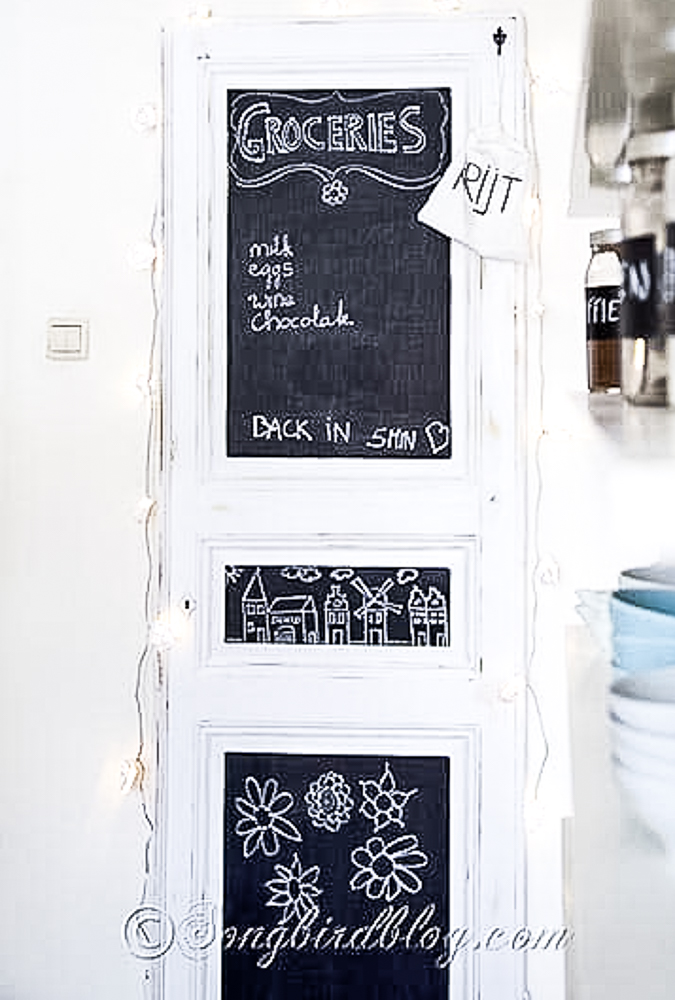 GROCERIES
RIJT
milk
eggs
wine
chocolate
BACK IN 5MIN
© Songbirdblog.com